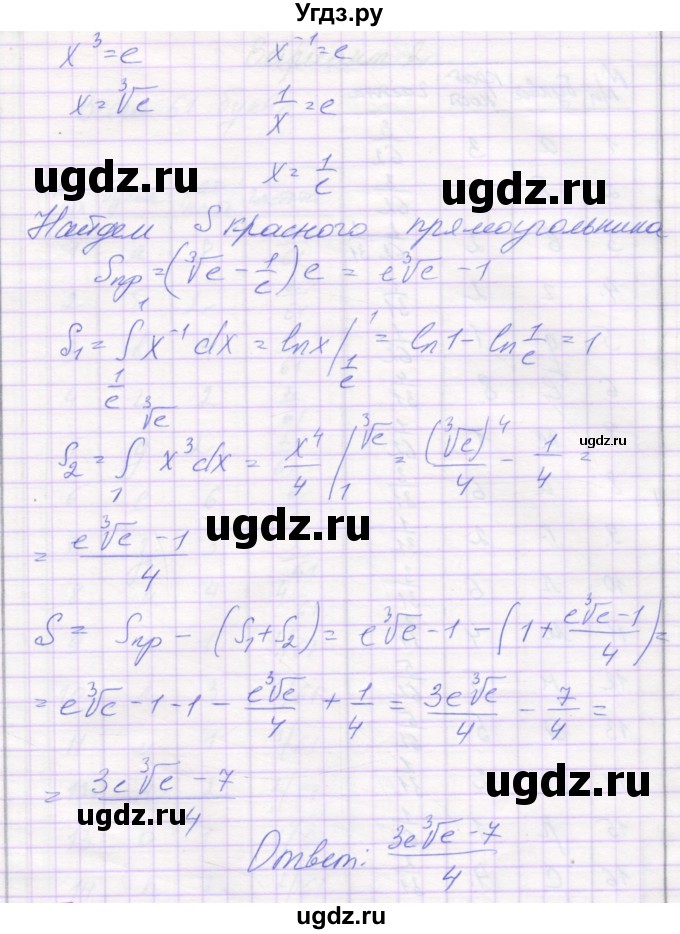 Угдз.ру
x³ = e    x⁻¹ = e
x = ∛e    1/x = e
ugdz.ru ugdz.ru
x = 1/e
Найдем S красного прямоугольника
Sпр = (∛e − 1/e) e = e∛e − 1
S₁ = ∫_{1/e}^{1} x⁻¹ dx = ln x |_{1/e}^{1} = ln 1 − ln 1/e = 1
S₂ = ∫_{1}^{∛e} x³ dx = x⁴/4 |_{1}^{∛e} = (∛e)⁴/4 − 1/4 =
ugdz.ru
ugdz.ru
= (e∛e − 1)/4
S = Sпр − (S₁ + S₂) = e∛e − 1 − (1 + (e∛e − 1)/4) =
= e∛e − 1 − 1 − e∛e/4 + 1/4 = 3e∛e/4 − 7/4 =
ugdz.ru
= (3e∛e − 7)/4
ugdz.ru
Ответ: (3e∛e − 7)/4
ugdz.ru